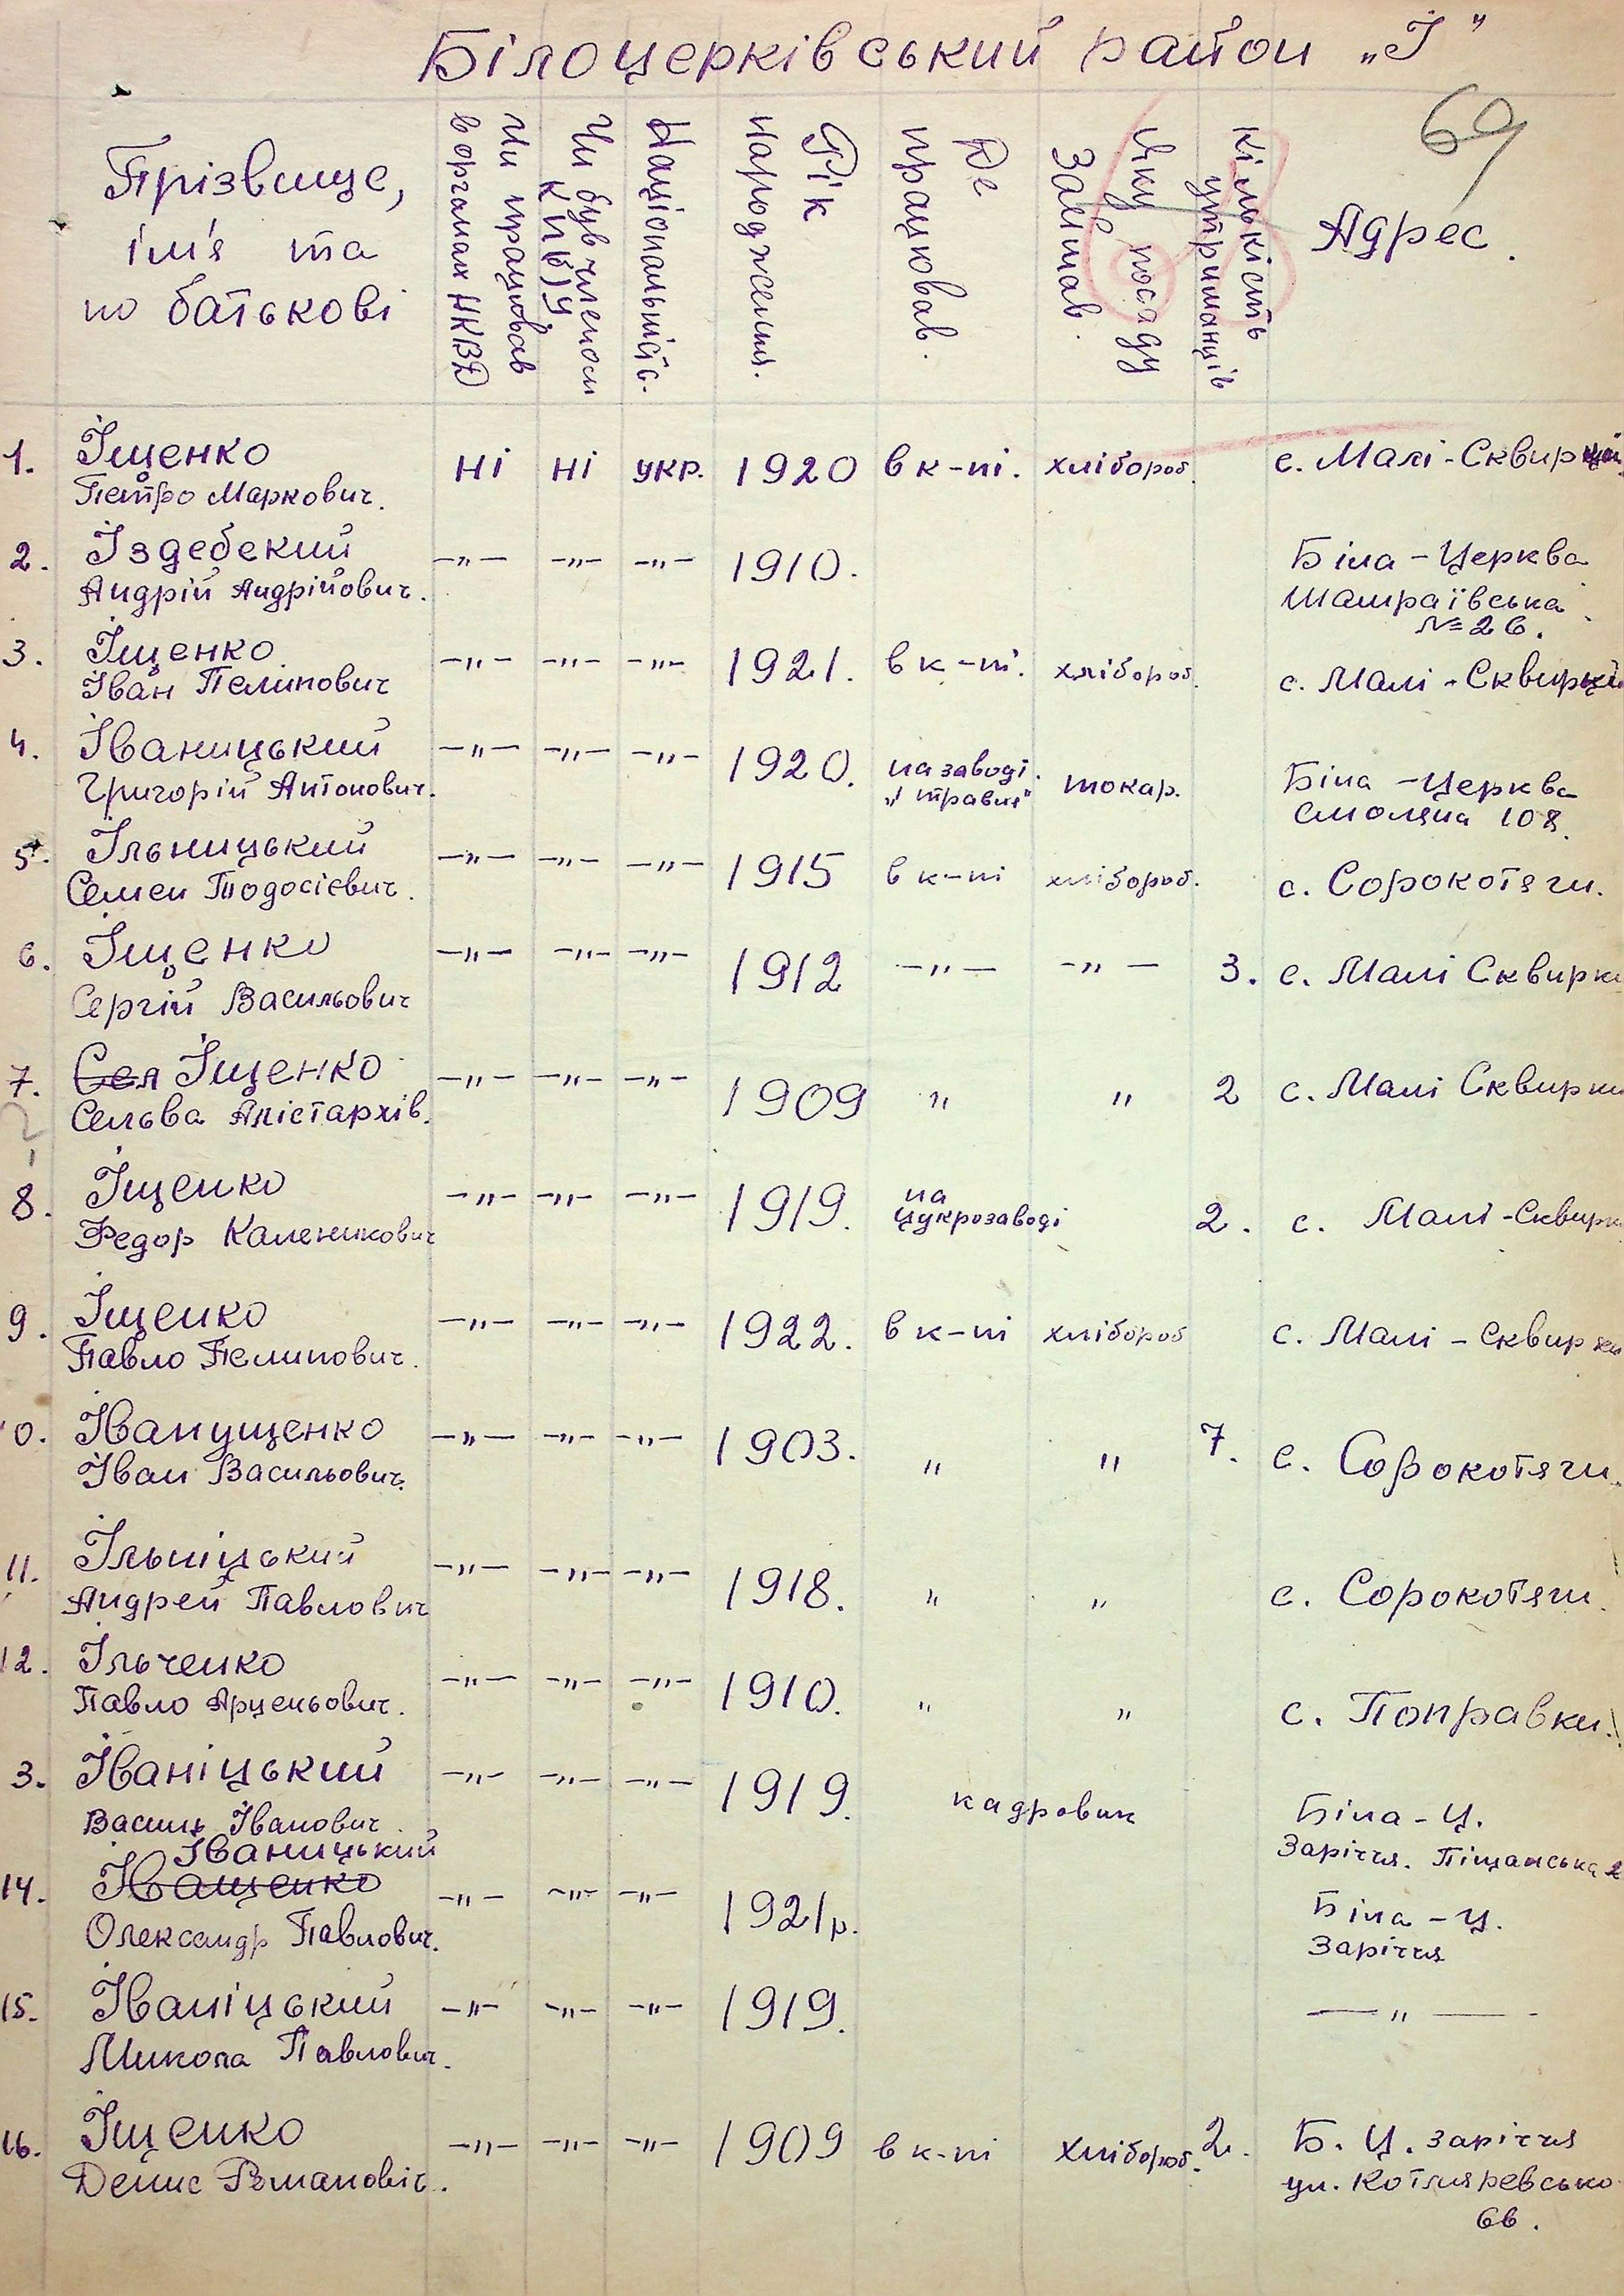 Білоцерківський район „І"
69
Прізвище,
ім'я та
по батькові
Чи працював
в органах НКВД
Чи був членом
КП(б)У
Національність.
Рік
народження.
Де
працював.
Яку посаду
займав.
Кількість
утриманців
Адрес.
1. Іщенко ні ні укр. 1920 в к-пі. хлібороб. с. Малі-Сквирки
Петро Маркович.
2. Іздебский —„— —„— —„— 1910. Біла-Церква
Андрій Андрійович. Шамраївська
№ 26.
3. Іщенко —„— —„— —„— 1921. в к-пі. хлібороб. с. Малі-Сквирки
Іван Пелипович
4. Іваницький —„— —„— —„— 1920. на заводі. токар. Біла-Церква
Григорій Антонович. „1 травня" Смоляна 108.
5. Ільницький —„— —„— —„— 1915 в к-пі хлібороб. с. Сорокотяги.
Семен Тодосієвич.
6. Іщенко —„— —„— —„— 1912 —„— —„— 3. с. Малі Сквирки
Сергій Васильович
7. Сел Іщенко —„— —„— —„— 1909 „ „ 2 с. Малі Сквирки
Сельва Арістархів.
8. Іщенко —„— —„— —„— 1919. на 2. с. Малі-Сквирки
Федор Каленикович цукрозаводі
9. Іщенко —„— —„— —„— 1922. в к-пі хлібороб с. Малі-Сквирки
Павло Пелипович.
0. Іванущенко —„— —„— —„— 1903. „ „ 7. с. Сорокотяги.
Іван Васильович.
11. Ільніцький —„— —„— —„— 1918. „ „ с. Сорокотяги.
Андрей Павлович
12. Ільченко —„— —„— —„— 1910. „ „ с. Поправки.
Павло Арценьович.
3. Іваніцький —„— —„— —„— 1919. кадровик Біла-Ц.
Василь Іванович Заріччя. Піщанська 2
Іваницький
14. Іващенко —„— —„— —„— 1921р. Біла-Ц.
Олександр Павлович. Заріччя
15. Іваніцький —„— —„— —„— 1919. —„—
Микола Павлович.
16. Іщенко —„— —„— —„— 1909 в к-пі хлібороб. 2. Б. Ц. Заріччя
Денис Романовіч. ул. Котляревсько
6в.